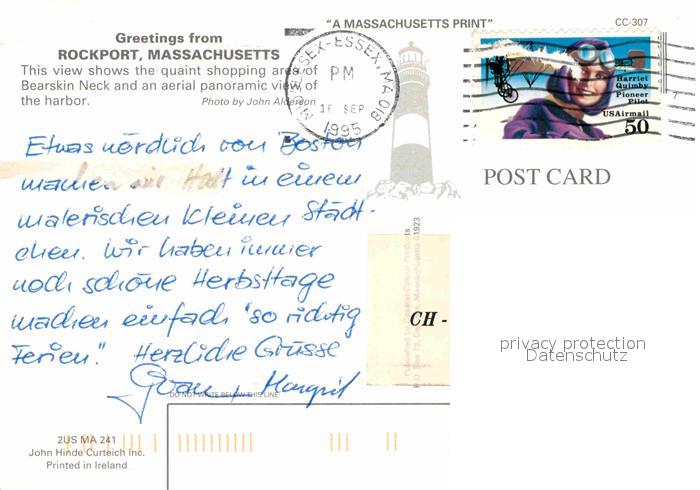 "A MASSACHUSETTS PRINT"
CC-307
Greetings from
ROCKPORT, MASSACHUSETTS
This view shows the quaint shopping area of
Bearskin Neck and an aerial panoramic view of
the harbor.
Photo by John Alderson
MIDDLESEX-ESSEX, MA 018
PM
16 SEP
1995
Harriet
Quimby
Pioneer
Pilot
USAirmail
50
POST CARD
Etwas nördlich von Boston
machen wir Halt in einem
malerischen kleinen Städt-
chen. Wir haben immer
noch schöne Herbsttage
machen einfach "so richtig
Ferien." Herzliche Grüsse
Margrit
CH -
Massachusetts 01923
privacy protection
Datenschutz
DO NOT WRITE BELOW THIS LINE
2US MA 241
John Hinde Curteich Inc.
Printed in Ireland